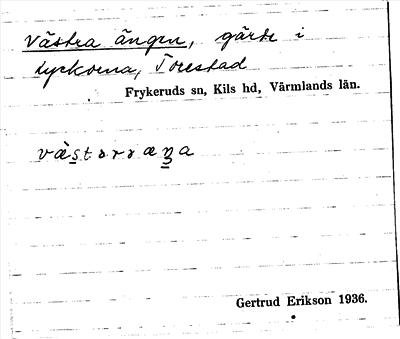 Västra ängen, gärde i
lyckorna, Torestad
Frykeruds sn, Kils hd, Värmlands län.
Gertrud Erikson 1936.